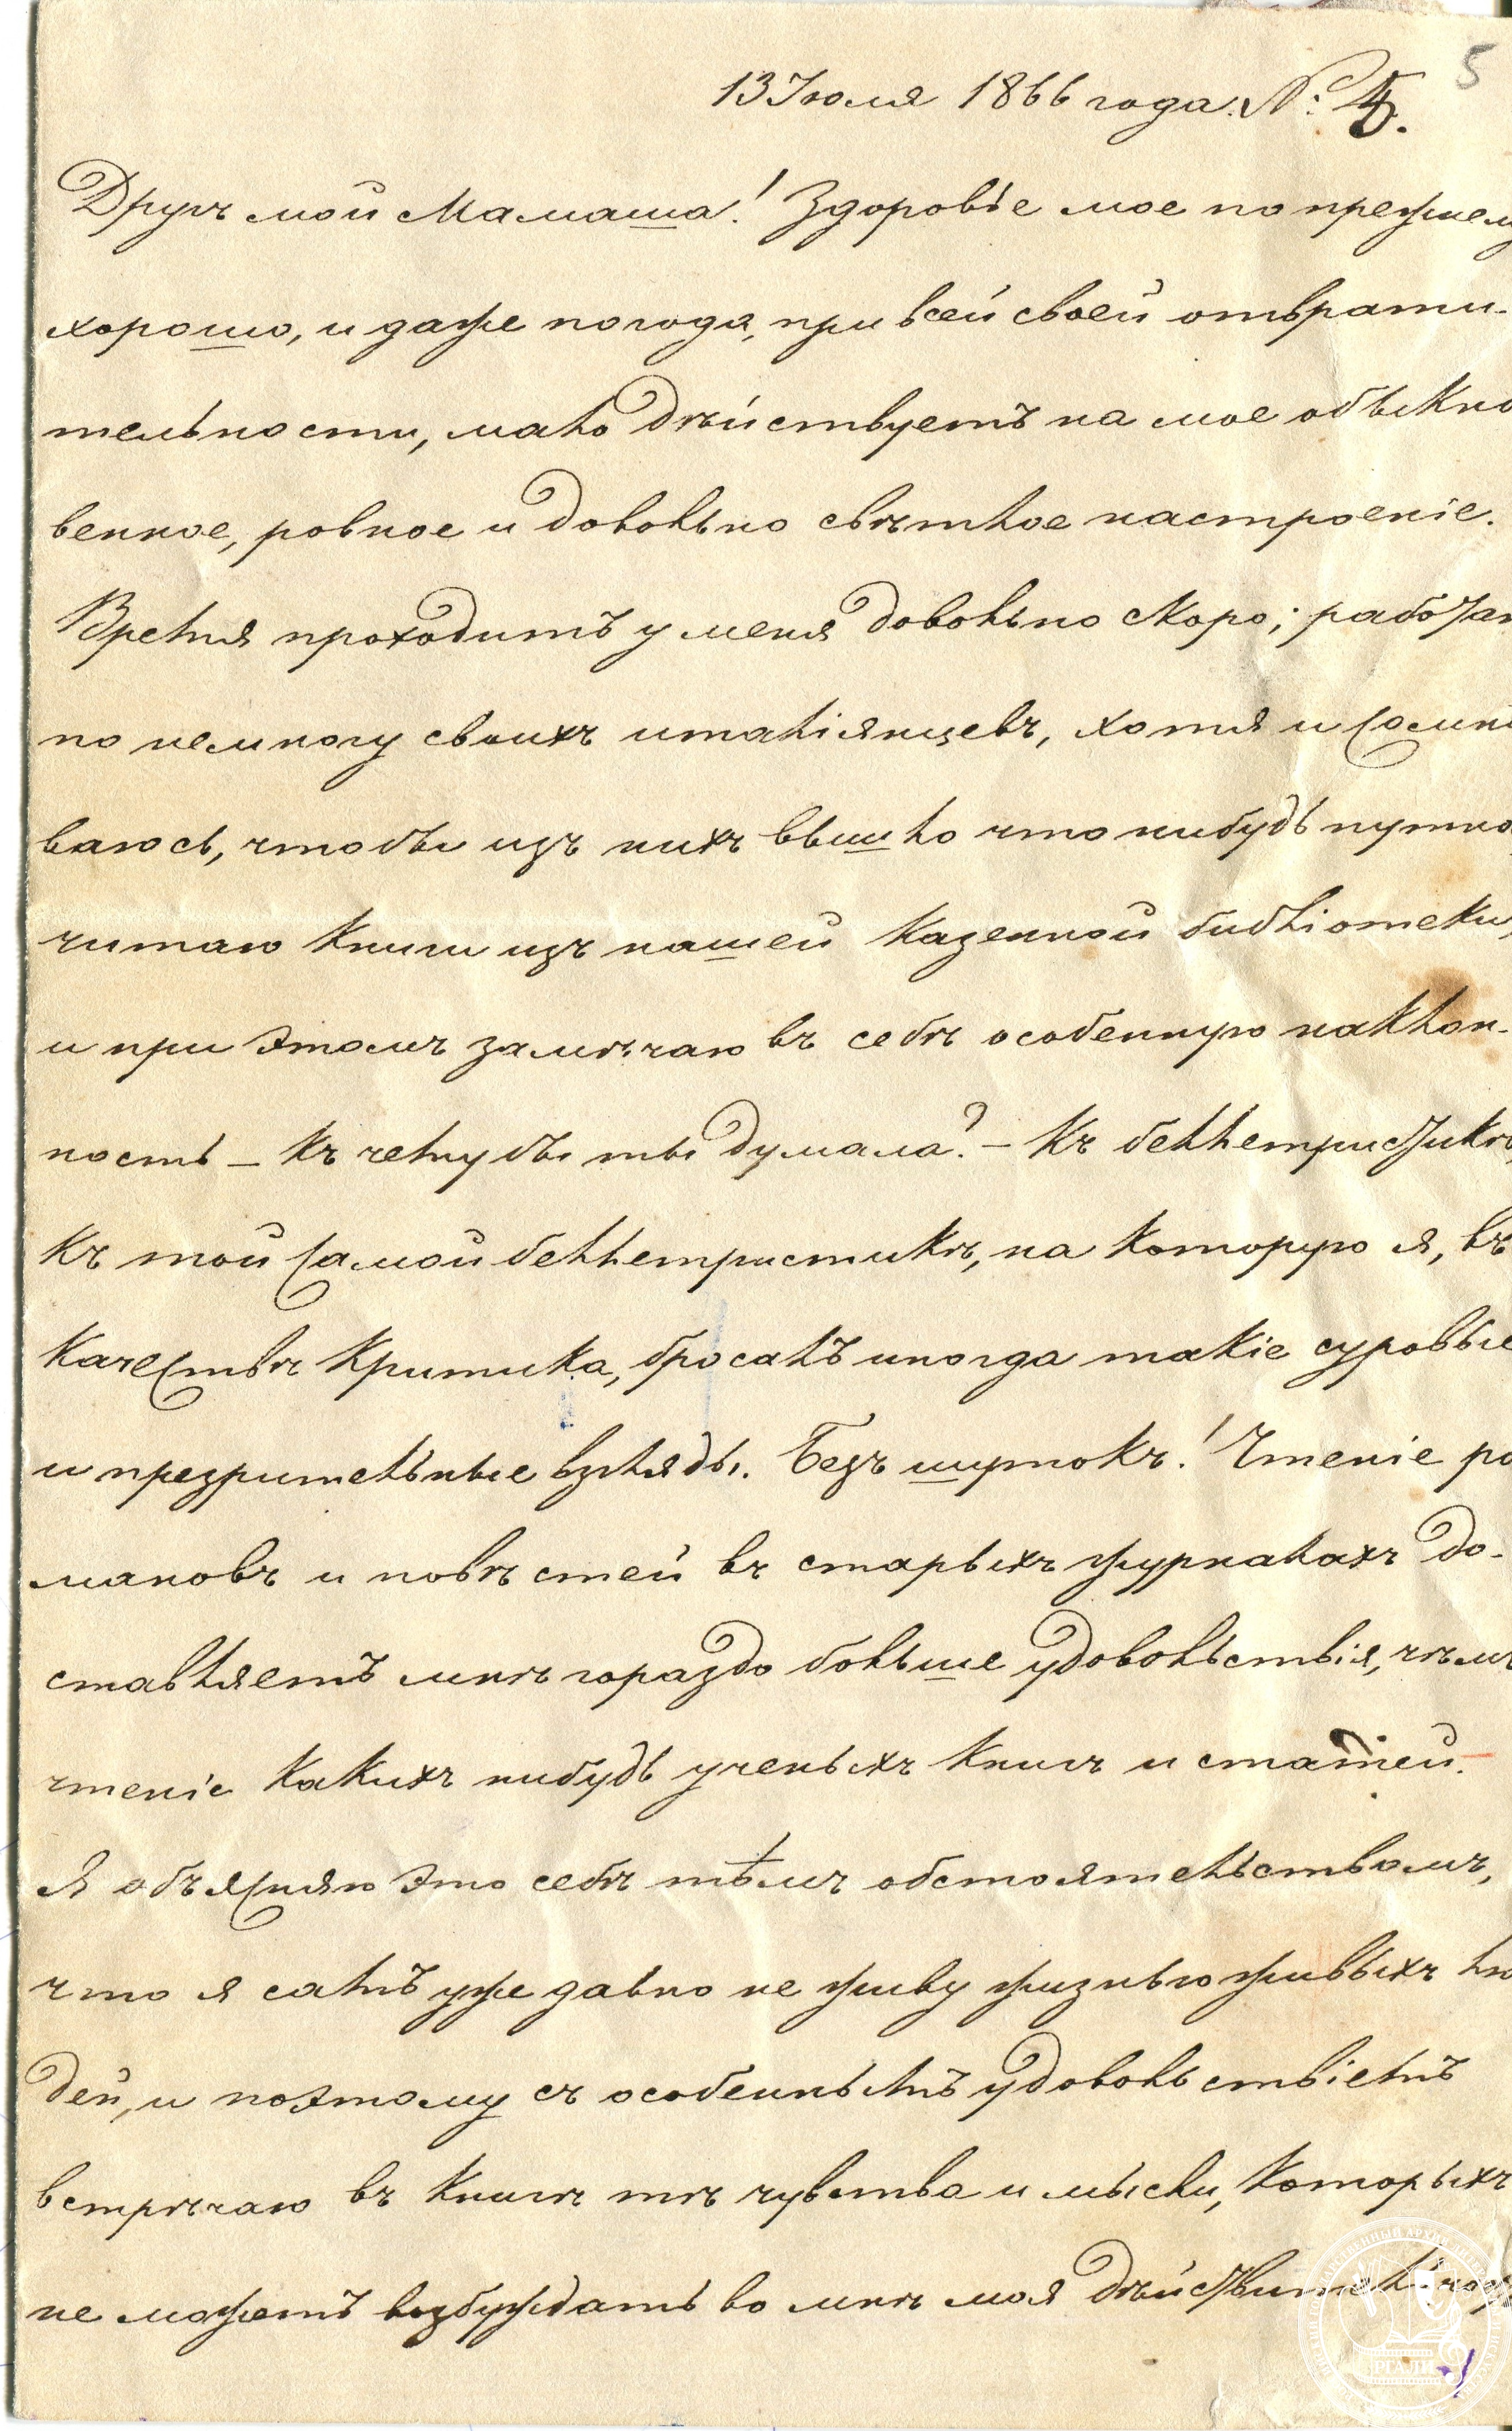 5
13 Июля 1866 года. №: 5.
Другъ мой Мамаша! Здоровье мое по прежнему
хорошо, и даже погода, при всей своей отврати-
тельности, мало действуетъ на мое обыкно
венное, ровное и довольно свѣтлое настроеніе.
Время проходитъ у меня довольно скоро; работаю
по немногу своихъ италіянцевъ, хотя и сомнѣ
ваюсь, чтобы изъ нихъ вышло что нибудь путно
читаю книги изъ нашей казенной библіотеки,
и при этомъ замѣчаю въ себѣ особенную наклон-
ность – къ чему бы ты думала? – Къ беллетристикѣ,
къ той самой беллетристикѣ, на которую я, въ
качествѣ критика, бросалъ иногда такіе суровые
и презрительные взгляды. Безъ шутокъ! Чтеніе ро
мановъ и повѣстей въ старыхъ журналахъ до-
ставляетъ мнѣ гораздо больше удовольствія, чѣмъ
чтеніе какихъ нибудь ученыхъ книгъ и статей.
Я объясняю это себѣ тѣмъ обстоятельствомъ,
что я самъ уже давно не живу жизнью живыхъ лю
дей, и поэтому съ особеннымъ удовольствіемъ
встрѣчаю въ книгѣ тѣ чувства и мысли, которыхъ
не можетъ возбуждать во мнѣ моя дѣйствительность